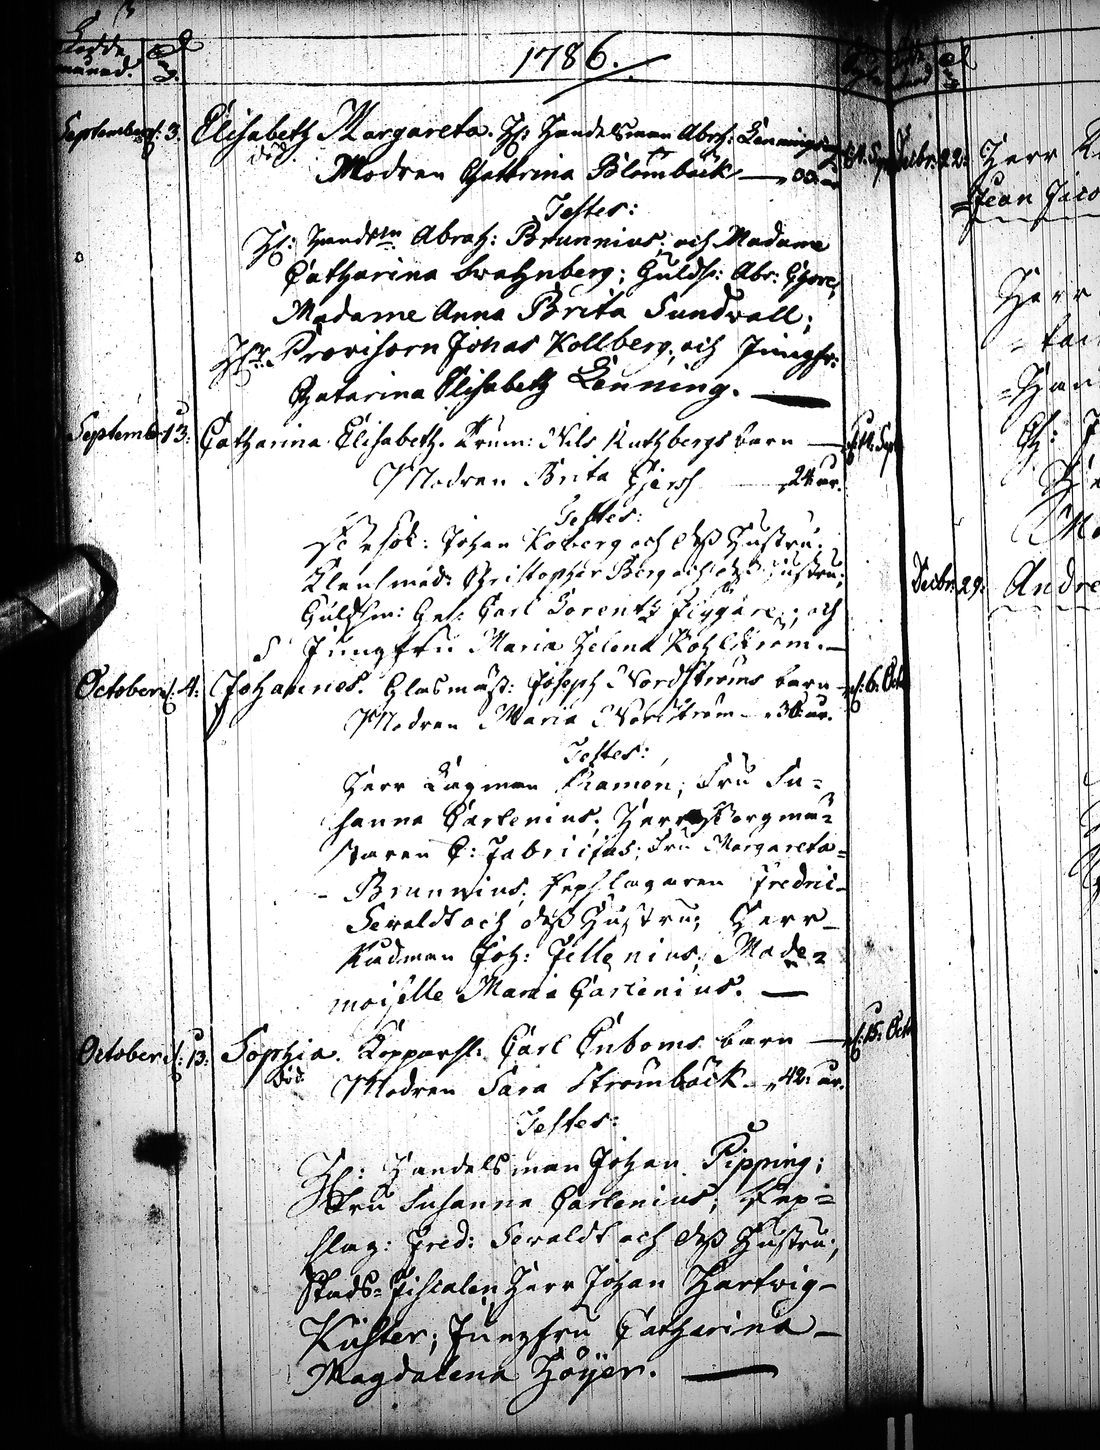 Födde
månad.
1786.
September d: 3. Elisabeth Margareta. Hr: Handelsman Abrh: Lennings
död. Modren Cathrina Blombäck — 33 år
Testes:
Hr: Handelsm Abrah: Brunnius; och Madame
Catharina Swahnberg; Guldsm: Abr:
Madame Anna Brita Sundvall;
Hr: Provisorn Jonas Kollberg, och Jungfr:
Catarina Elisabeth Lenning. —
Septemb: 13: Catharina Elisabeth. Nils Ruthbergs barn —
Modren Brita — 24 år.
Testes:
Johan Koberg och dess Hustru;
Klensmed: Christopher Berg och dess Hustru;
Guldsm: Ges: Carl Lorentz Flygare; och
Jungfru Maria Helena Kohlström. —
October d: 4: Johannes. Glasmäst: Joseph Nordströms barn — d: 6. Oct
Modren Maria Nordström — 36 år.
Testes:
Herr Lagman Framén; Fru Su-
sanna Carlenius; Herr Borgmä-
staren C: Fabricius; Fru Margareta-
Brunnius; Repslagaren Fredric-
Sevaldt och dess Hustru; Herr-
Rådman Joh: Fellenius; Made-
moiselle Maria Carlenius. —
October d: 13: Sophia. Kopparsl: Carl Enboms barn — d: 15: Oct
död Modren Sara Strömbäck — 42 år.
Testes:
Hr: Handelsman Johan Pipping;
Fru Susanna Carlenius; Rep-
slag: Fred: Sevaldt och dess Hustru;
Stads-Fiscalen Herr Johan Hartwig-
Küster; Jungfru Catharina-
Magdalena Höijer. —
Decbr: 22: Herr
Jean Jaco
Herr
Decbr: 29: Andre